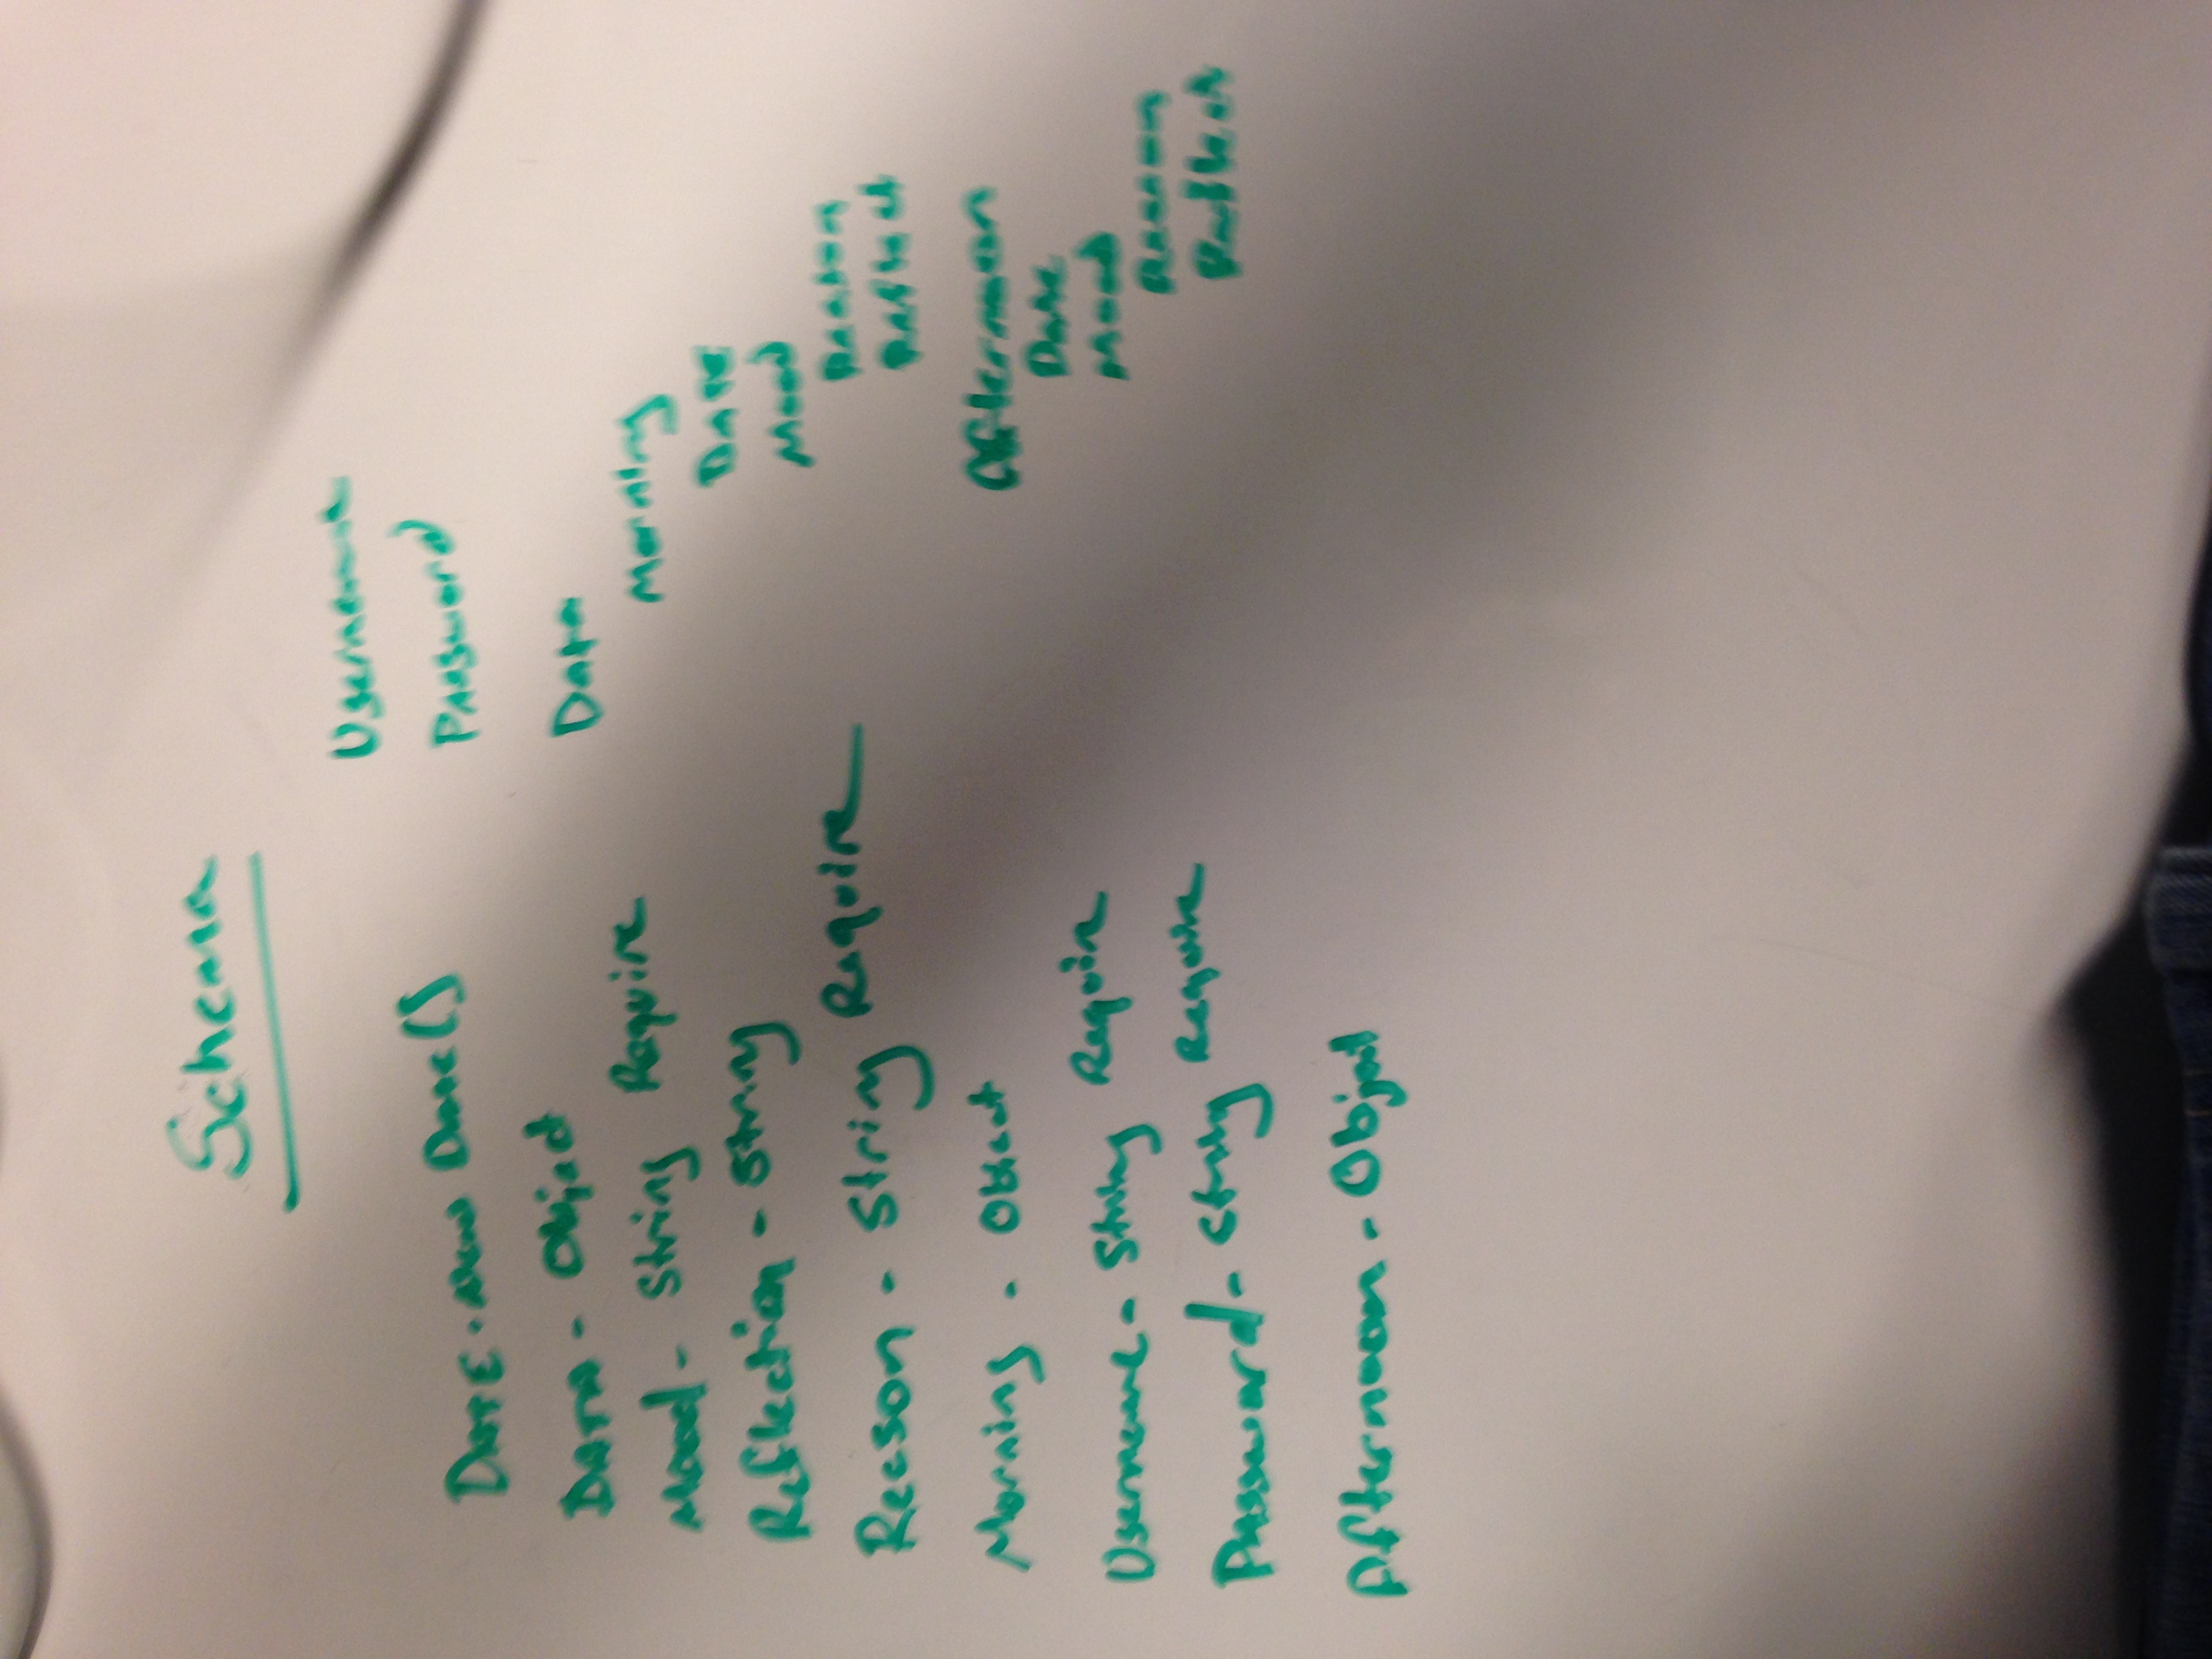 Schema
DATE - New Date()
DATA - Object
Mood - String Require
Reflection - String
Reason - String Require
Morning - Object
Username - String Require
Password - String Require
Afternoon - Object
Username
Password
Data
Morning
DATE
Mood
Reason
Reflect
Afternoon
Date
Mood
Reason
Reflect